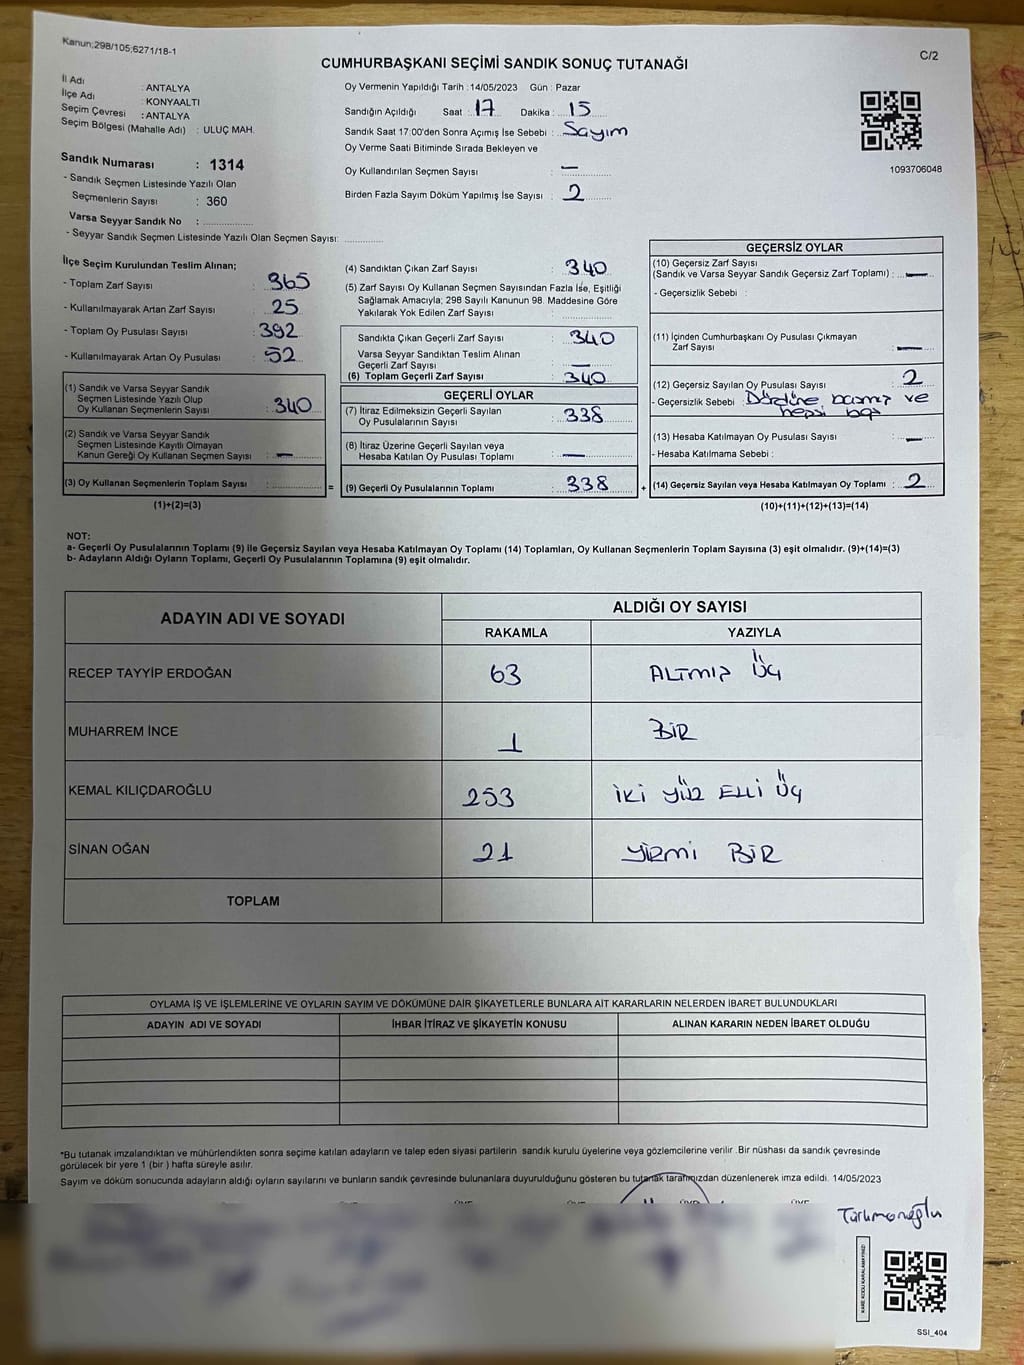 Kanun;298/105;6271/18-1
C/2
CUMHURBAŞKANI SEÇİMİ SANDIK SONUÇ TUTANAĞI
İl Adı : ANTALYA
İlçe Adı : KONYAALTI
Seçim Çevresi : ANTALYA
Seçim Bölgesi (Mahalle Adı) : ULUÇ MAH.
Sandık Numarası : 1314
- Sandık Seçmen Listesinde Yazılı Olan
Seçmenlerin Sayısı : 360
Varsa Seyyar Sandık No :
- Seyyar Sandık Seçmen Listesinde Yazılı Olan Seçmen Sayısı:
Oy Vermenin Yapıldığı Tarih : 14/05/2023 Gün : Pazar
Sandığın Açıldığı Saat : 17 Dakika : 15
Sandık Saat 17:00'den Sonra Açımış İse Sebebi : Sayım
Oy Verme Saati Bitiminde Sırada Bekleyen ve
Oy Kullandırılan Seçmen Sayısı : —
Birden Fazla Sayım Döküm Yapılmış İse Sayısı : 2
1093706048
İlçe Seçim Kurulundan Teslim Alınan;
- Toplam Zarf Sayısı : 365
- Kullanılmayarak Artan Zarf Sayısı : 25
- Toplam Oy Pusulası Sayısı : 392
- Kullanılmayarak Artan Oy Pusulası : 52
(1) Sandık ve Varsa Seyyar Sandık
Seçmen Listesinde Yazılı Olup
Oy Kullanan Seçmenlerin Sayısı : 340
(2) Sandık ve Varsa Seyyar Sandık
Seçmen Listesinde Kayıtlı Olmayan
Kanun Gereği Oy Kullanan Seçmen Sayısı : —
(3) Oy Kullanan Seçmenlerin Toplam Sayısı :
(1)+(2)=(3)
(4) Sandıktan Çıkan Zarf Sayısı : 340
(5) Zarf Sayısı Oy Kullanan Seçmen Sayısından Fazla İse, Eşitliği
Sağlamak Amacıyla; 298 Sayılı Kanunun 98. Maddesine Göre
Yakılarak Yok Edilen Zarf Sayısı :
Sandıkta Çıkan Geçerli Zarf Sayısı : 340
Varsa Seyyar Sandıktan Teslim Alınan
Geçerli Zarf Sayısı : —
(6) Toplam Geçerli Zarf Sayısı : 340
GEÇERLİ OYLAR
(7) İtiraz Edilmeksizin Geçerli Sayılan
Oy Pusulalarının Sayısı : 338
(8) İtiraz Üzerine Geçerli Sayılan veya
Hesaba Katılan Oy Pusulası Toplamı : —
= (9) Geçerli Oy Pusulalarının Toplamı : 338
GEÇERSİZ OYLAR
(10) Geçersiz Zarf Sayısı
(Sandık ve Varsa Seyyar Sandık Geçersiz Zarf Toplamı) : —
- Geçersizlik Sebebi :
(11) İçinden Cumhurbaşkanı Oy Pusulası Çıkmayan
Zarf Sayısı : —
(12) Geçersiz Sayılan Oy Pusulası Sayısı : 2
- Geçersizlik Sebebi : Dördüne basmış ve
hepsi boş
(13) Hesaba Katılmayan Oy Pusulası Sayısı : —
- Hesaba Katılmama Sebebi :
+ (14) Geçersiz Sayılan veya Hesaba Katılmayan Oy Toplamı : 2
(10)+(11)+(12)+(13)=(14)
NOT:
a- Geçerli Oy Pusulalarının Toplamı (9) ile Geçersiz Sayılan veya Hesaba Katılmayan Oy Toplamı (14) Toplamları, Oy Kullanan Seçmenlerin Toplam Sayısına (3) eşit olmalıdır. (9)+(14)=(3)
b- Adayların Aldığı Oyların Toplamı, Geçerli Oy Pusulalarının Toplamına (9) eşit olmalıdır.
ADAYIN ADI VE SOYADI
ALDIĞI OY SAYISI
RAKAMLA YAZIYLA
RECEP TAYYİP ERDOĞAN 63 ALTMIŞ ÜÇ
MUHARREM İNCE 1 BİR
KEMAL KILIÇDAROĞLU 253 İKİ YÜZ ELLİ ÜÇ
SİNAN OĞAN 21 YİRMİ BİR
TOPLAM
OYLAMA İŞ VE İŞLEMLERİNE VE OYLARIN SAYIM VE DÖKÜMÜNE DAİR ŞİKAYETLERLE BUNLARA AİT KARARLARIN NELERDEN İBARET BULUNDUKLARI
ADAYIN ADI VE SOYADI İHBAR İTİRAZ VE ŞİKAYETİN KONUSU ALINAN KARARIN NEDEN İBARET OLDUĞU
*Bu tutanak imzalandıktan ve mühürlendikten sonra seçime katılan adayların ve talep eden siyasi partilerin sandık kurulu üyelerine veya gözlemcilerine verilir .Bir nüshası da sandık çevresinde
görülecek bir yere 1 (bir ) hafta süreyle asılır.
Sayım ve döküm sonucunda adayların aldığı oyların sayılarını ve bunların sandık çevresinde bulunanlara duyurulduğunu gösteren bu tutanak tarafımızdan düzenlenerek imza edildi. 14/05/2023
Türkmenoğlu
KARE KODU KARALAMAYINIZ!
SSI_404